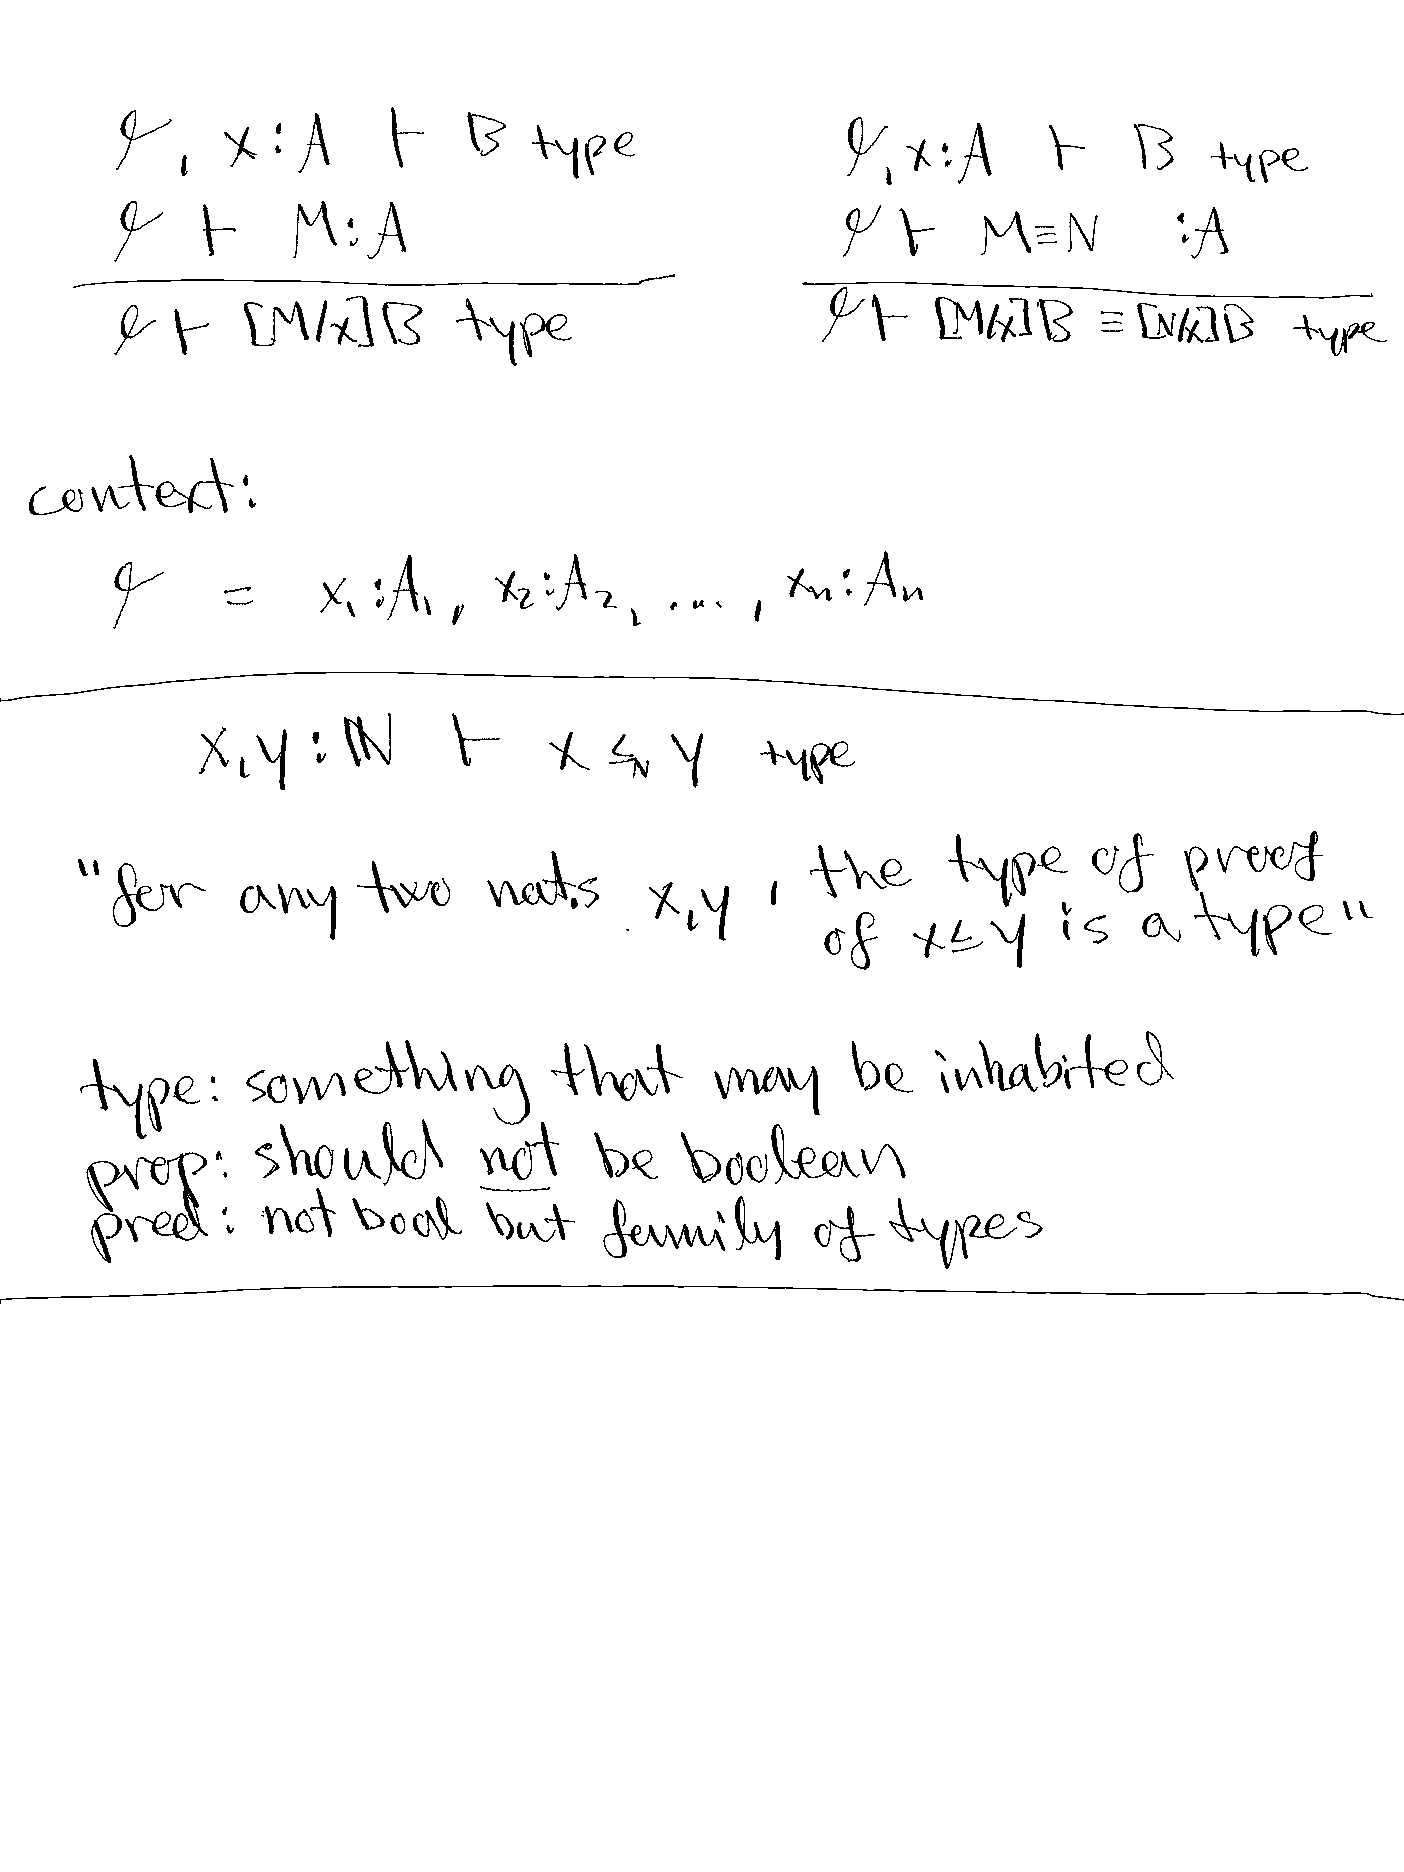 φ, x:A ⊢ B type
φ ⊢ M:A
φ ⊢ [M/x]B type
φ, x:A ⊢ B type
φ ⊢ M≡N :A
φ ⊢ [M/x]B ≡ [N/x]B type
context:
φ = x₁:A₁, x₂:A₂, ..., xₙ:Aₙ
x,y:ℕ ⊢ x ≤ℕ y type
"for any two nats x,y, the type of proof
of x≤y is a type"
type: something that may be inhabited
prop: should not be boolean
pred: not bool but family of types